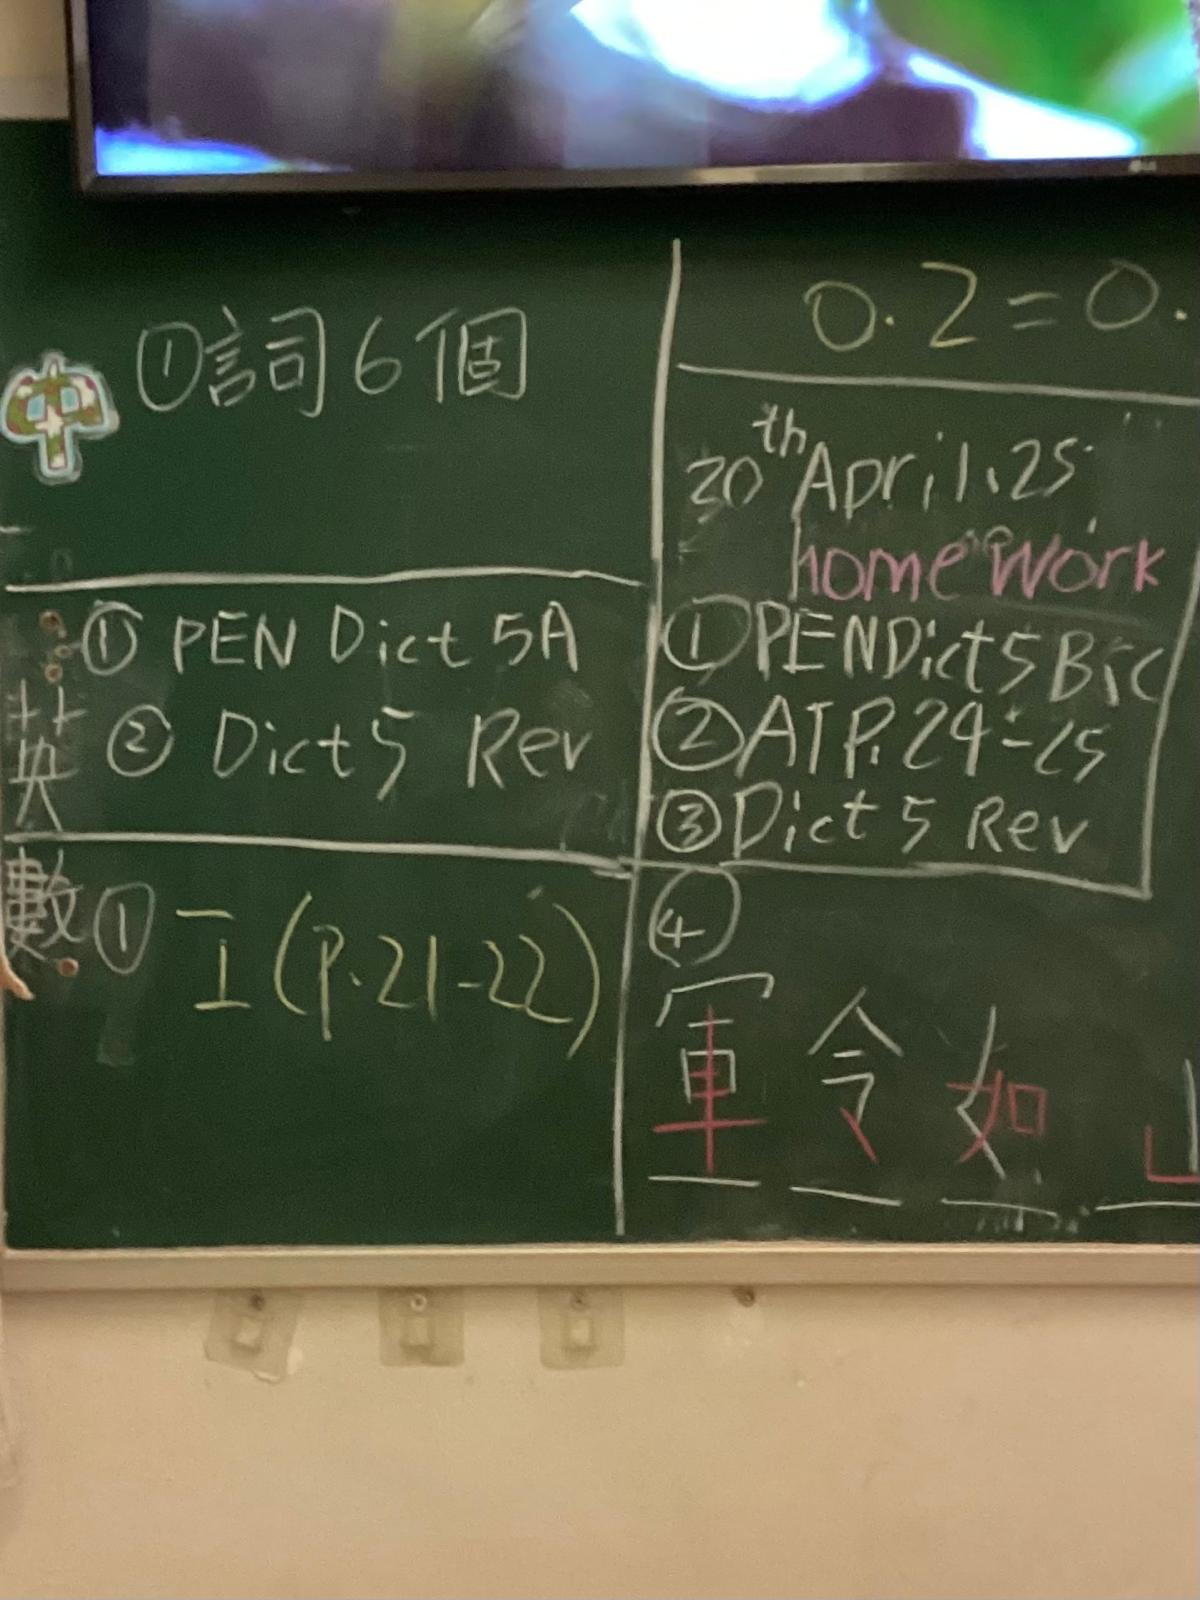 中 ①詞6個
英 ① PEN Dict 5A
② Dict 5 Rev
數 ① 工(P.21-22)
0.2=0.
30th April.25
homeWork
①PENDict5B+C
②ATP.24-25
③Dict 5 Rev
④
軍令如山